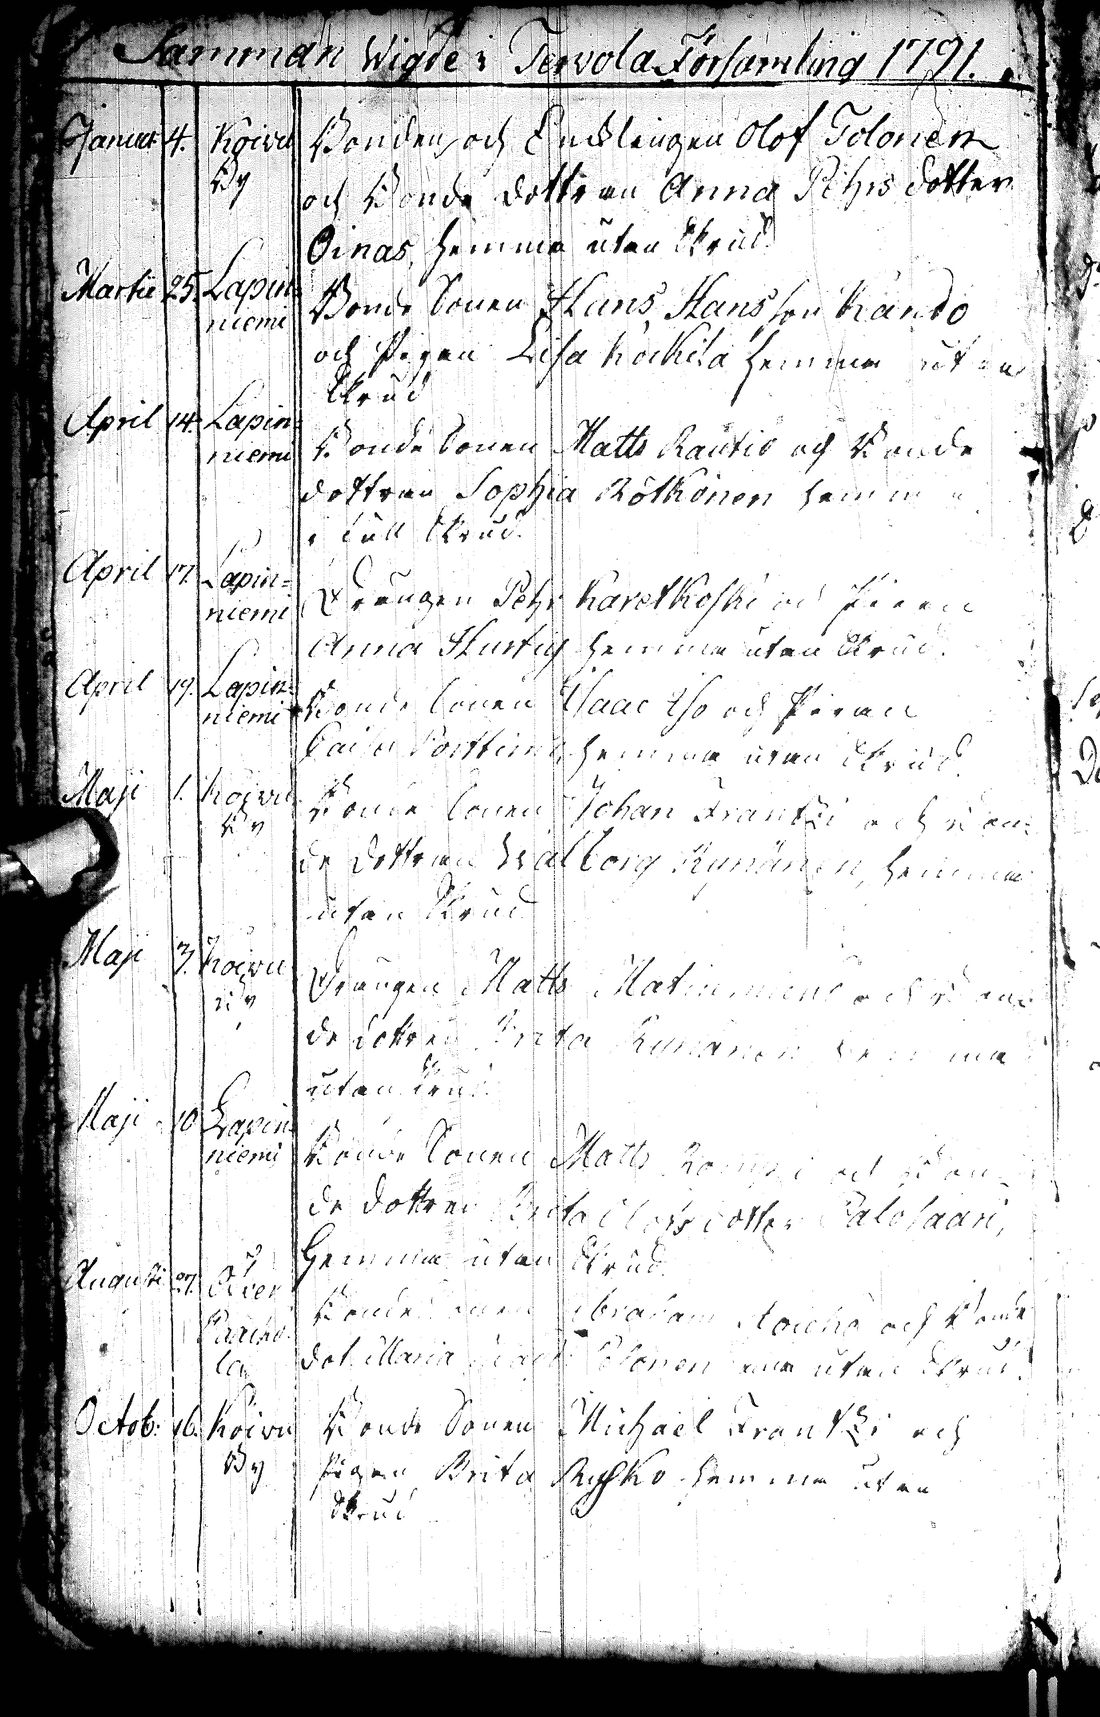 Samman Wigde i Terwola Församling 1791.
Januar 4. Koivu Bonden och Enklingen Olof Tolonen
By och Bonde dottren Anna Pehrs dotter
Oinas, hemma utan Skrud.
Martii 25. Lapin=
niemi Bonde Sonen Hans Hans son Kando
och Pigan Lisa hemma utan
Skrud
April 14. Lapin=
niemi Bonde Sonen Matts Rautio och Bonde
dottren Sophia Rötkönen hemma
i full Skrud.
April 17. Lapin=
niemi Drängen Pehr Karetkoski och Pigan
Anna Hurtig hemma utan Skrud.
April 19. Lapin=
niemi Bonde Sonen Isaac Iso och Pigan
Caisa hemma utan Skrud.
Maji 1. Koivu Bonde Sonen Johan Frantzi och Bon=
By de dottren Walborg Kynänen, hemma
utan Skrud
Maji 3. Koivu Drängen Matts och Bon=
By de dottren Brita Kynänen hemma
utan Skrud.
Maji 10 Lapin=
niemi Bonde Sonen Matts och Bon=
de dottren Brita dotter Palosaari,
hemma utan Skrud.
Augusti 27. Öfver Bonde Sonen Abraham och Bonde
Paacko
la dot. Maria utan Skrud.
Octob: 16. Koivu Bonde Sonen Michael Frantzi och
By Pigan Brita Rysko hemma utan
Skrud